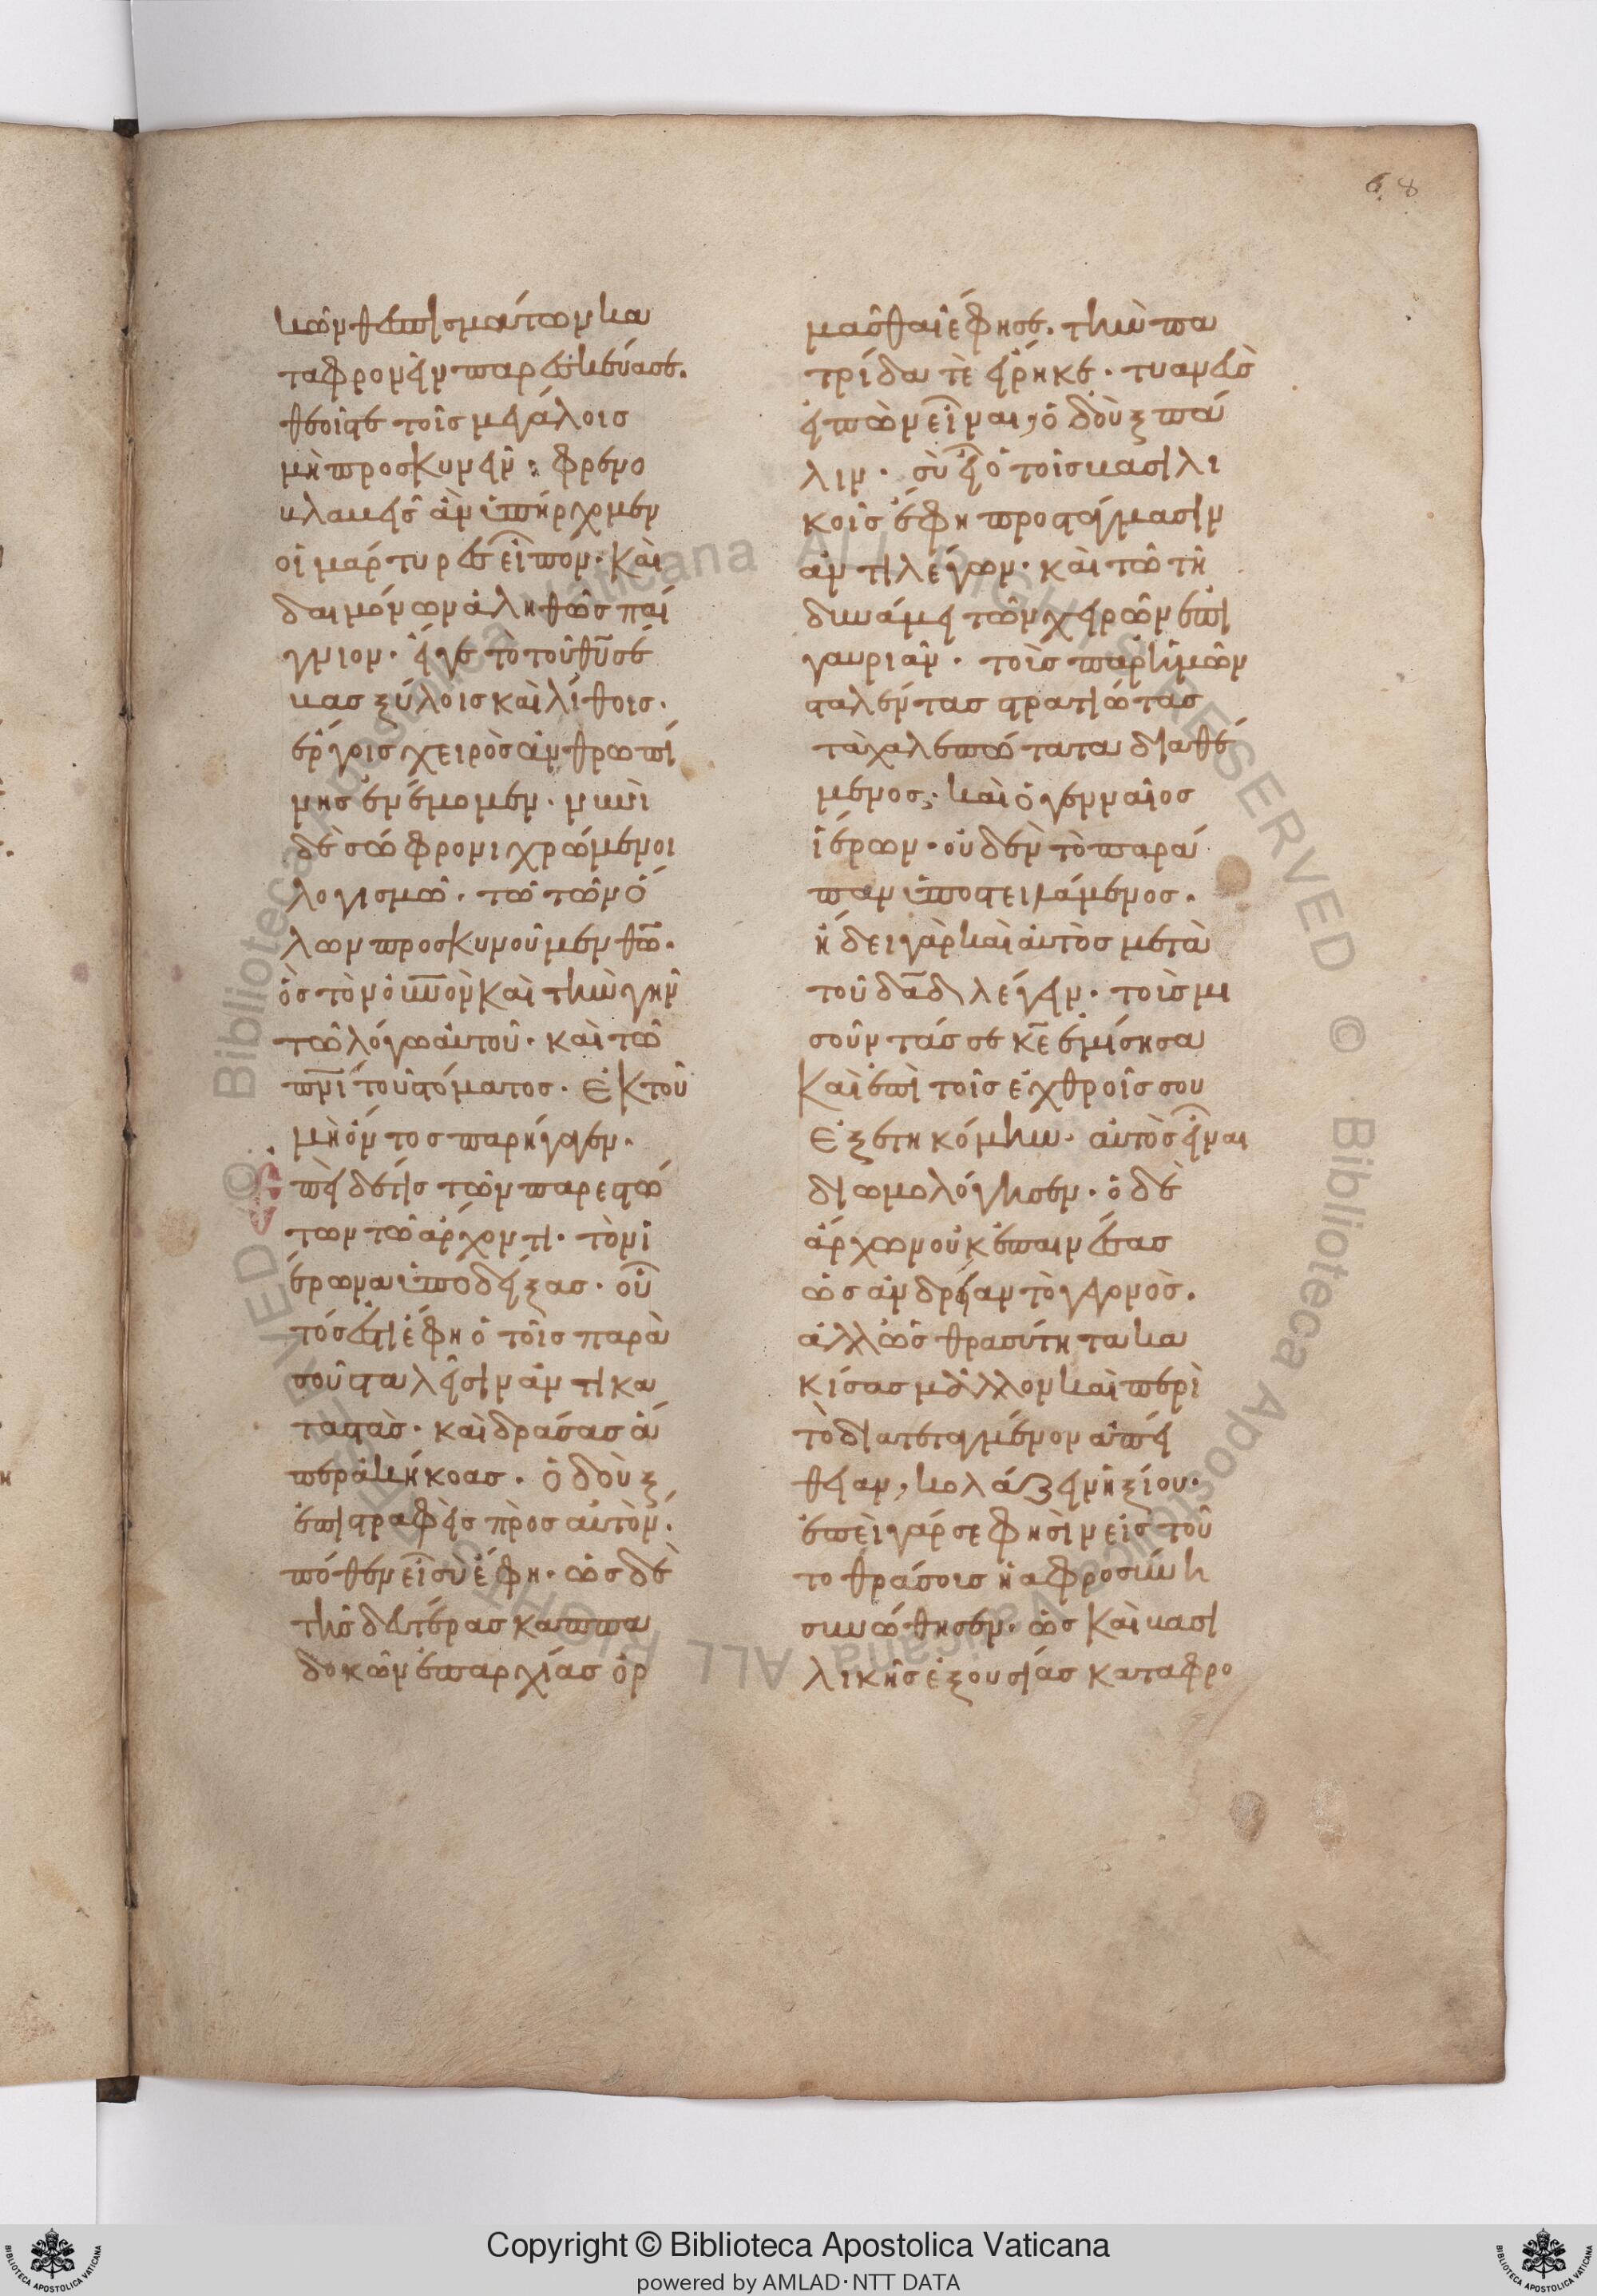 68
κῶν θεσπισμάτων κα
ταφρονεῖν παρεσκεύασε.
θεοῖς τε τοῖς μεγάλοις
μὴ προσκυνεῖν· φρενο
βλαβεῖς ἂν ὑπήρχομεν
οἱ μάρτυρες εἶπον· καὶ
δαιμόνων ἀληθῶς παί
γνιον· εἴγε τὸ τοῦ θυ σέ
βας ξύλοις καὶ λίθοις·
ἔργοις χειρὸς ἀνθρωπί
νης ἐνέμομεν· νυνὶ
δὲ σώφρονι χρώμενοι
λογισμῶ· τῶ τῶν ὅ
λων προσκυνοῦμεν θω·
ὃς τὸν οὐνον καὶ τὴν γῆν
τῶ λόγω αὐτοῦ· καὶ τῶ
πνι τοῦ στόματος· ἐκ τοῦ
μὴ ὄντος παρήγαγεν·
ἐπεὶ δέ τις τῶν παρεστώ
των τῶ ἄρχοντι· τὸν ἱ
έρωνα ὑποδείξας· οὗ
τός ἐστι ἔφη ὁ τοῖς παρὰ
σοῦ σταλεῖσιν ἀντικα
ταστὰς· καὶ δράσας ἅ
περ ἀκήκοας· ὁ δοὺξ
ἐπιστραφεὶς πρὸς αὐτόν·
πόθεν εἶ σὺ ἔφη· ὡς δὲ
τῆς δευτέρας καππα
δοκῶν ἐπαρχίας ὁρ
μᾶσθαι ἔφησε· τὴν πα
τρίδα τὲ εἴρηκε· τυανεὺς
εἰπὼν εἶναι, ὁ δοὺξ πά
λιν· σὺ εἶ ὁ τοῖς βασιλι
κοῖς ἔφη προστάγμασιν
ἀντιλέγων· καὶ τῶ τῆ
δυνάμει τῶν χειρῶν ἐπι
γαυριᾶν· τοῖς παρ' ἡμῶν
σταλέντας στρατιώτας
τὰ χαλεπώτατα διαθέ
μενος· καὶ ὁ γενναῖος
ἱέρων· οὐδὲν τὸ παρά
παν ὑποστειλάμενος·
ἤδει γὰρ καὶ αὐτὸς μετὰ
τοῦ δαδ λέγειν· τοὺς μι
σοῦντάς σε κε ἐμίσησα
καὶ ἐπὶ τοῖς ἐχθροῖς σου
ἐξετηκόμην· αὐτὸς εἶναι
διωμολόγησεν· ὁ δὲ
ἄρχων οὐκ ἐπαινέσας
ὡς ἀνδρείαν τὸ γεγονὸς·
ἀλλ' ὡς θρασύτητα κα
κίσας μᾶλλον καὶ περὶ
τὸ διατεταγμένον ἀπεί
θειαν, κολάζειν ἠξίου·
ἐπεὶ γάρ σε φησὶν εἰς τοῦ
το θράσους ἡ ἀφροσύνη
συνώθησεν· ὡς καὶ βασι
λικῆς ἐξουσίας καταφρο
Copyright © Biblioteca Apostolica Vaticana
powered by AMLAD·NTT DATA